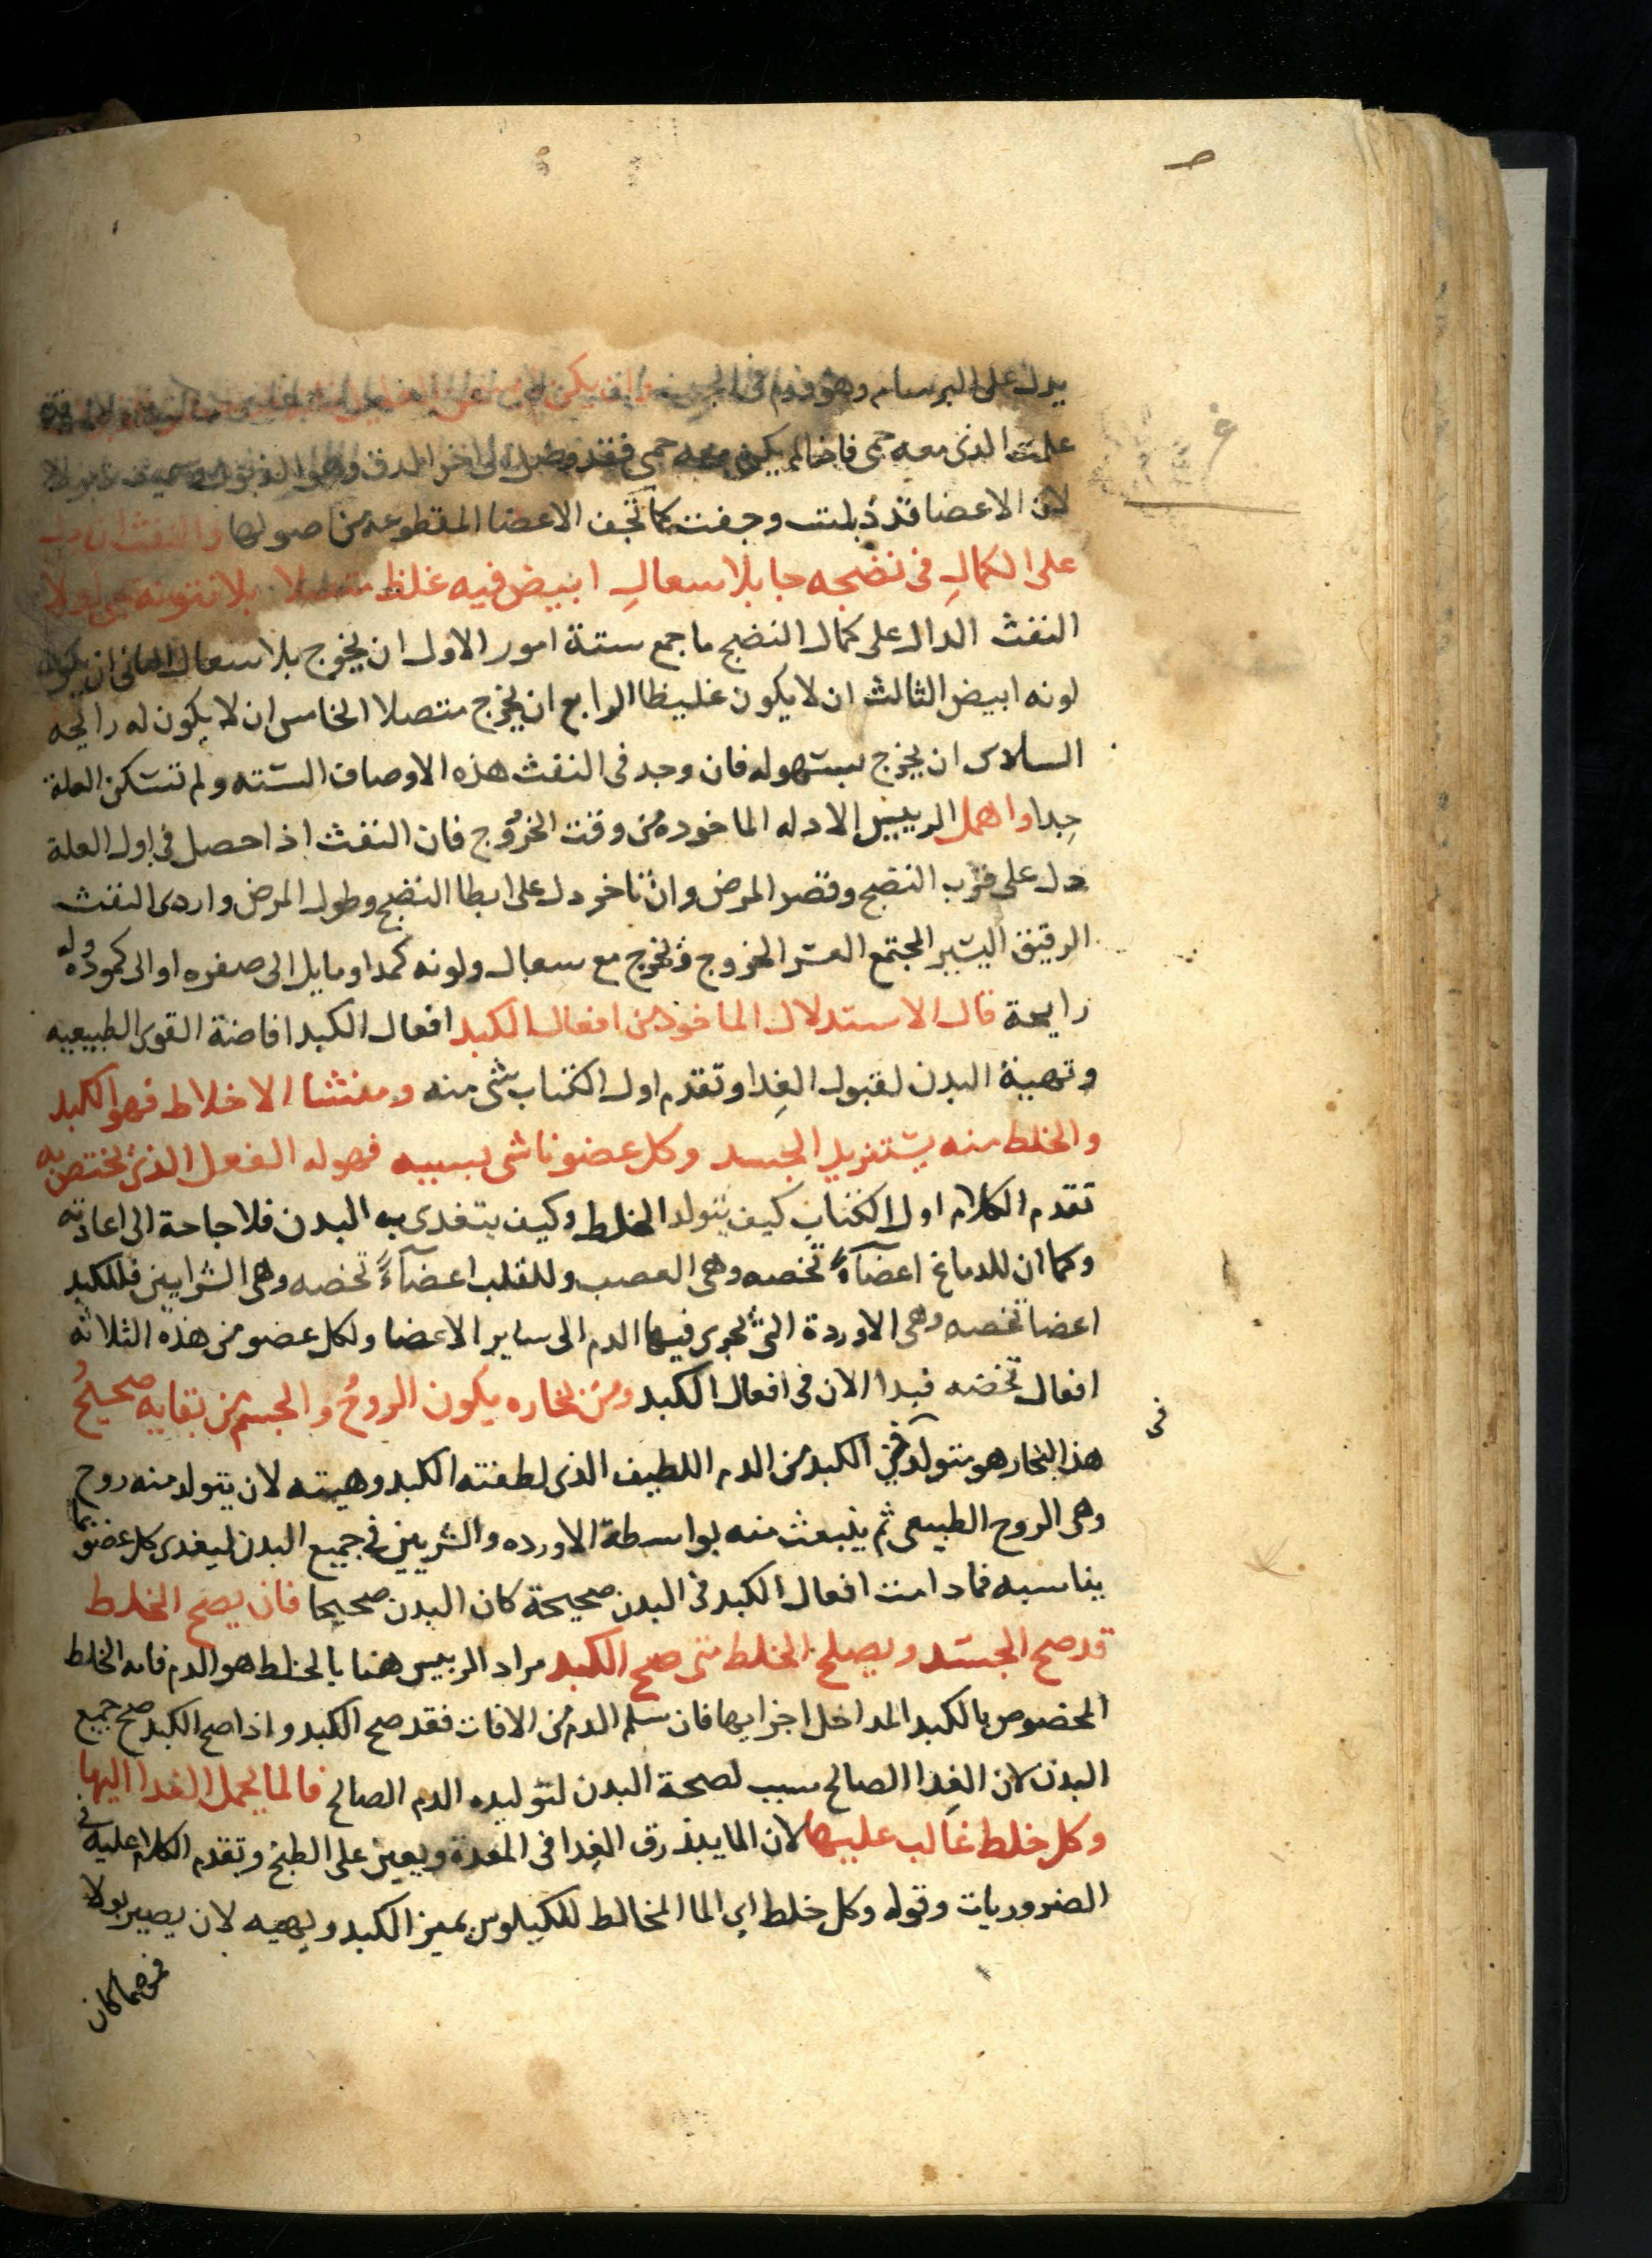 يدل على البرسام وهو ورم في
علمت الذى معه حمى فاذا لم يكن معه حمى فقد وصل الى اخر الدق وهو
لان الاعضا قد ذبلت وجفت كما تجف الاعضا المقطوعة من اصولها والنفث ان
على الكمال في نضجه جا بلا سعال ابيض فيه غلظ متصلا بلا نتونة
النفث الدال على كمال النضج ما جمع ستة امور الاول ان يخرج بلا سعال الثانى ان يكون
لونه ابيض الثالث ان لا يكون غليظا الرابع ان يخرج متصلا الخامس ان لا يكون له رايحه
السادس ان يخرج بسهوله فان وجد فى النفث هذه الاوصاف الستة ولم تسكن العلة
جدا واهمل الرييس الادله الماخوده من وقت الخروج فان النفث اذا حصل في اول العلة
دل على قرب النضج وقصر المرض وان تاخر دل على ابطا النضج وطول المرض واردى النفث
الرقيق اليسير المجتمع العسر الخروج ويخرج مع سعال ولونه كمد او مايل الى صفره او الى كموده وله
رايحة قال الاستدلال الماخوذ من افعال الكبد افعال الكبد افاضة القوى الطبيعيه
وتهية البدن لقبول الغدا وتقدم اول الكتاب شى منه ومنشا الاخلاط فهو الكبد
والخلط منه يستزيد الجسد وكل عضو ناشى بسببه فهو له الفعل الذى يختص به
تقدم الكلام اول الكتاب كيف يتولد الخلط وكيف يتغدى به البدن فلا حاجة الى اعادته
وكما ان للدماغ اعضآءً تخصه وهى العصب وللقلب اعضآءً تخصه وهى الشرايين فللكبد
اعضا تخصه وهى الاوردة التى تجرى فيها الدم الى ساير الاعضا ولكل عضو من هذه الثلاثه
افعال تخصه فبدا الان في افعال الكبد ومن بخاره يكون الروح والجسم من بقايه صحيح
هذا البخار هو متولد في الكبد من الدم اللطيف الذى لطفته الكبد وهيته لان يتولد منه روح
وهى الروح الطبيعى ثم ينبعث منه بواسطة الاورده والشريين في جميع البدن ليغدى كل عضو بما
يناسبه فما دامت افعال الكبد في البدن صحيحة كان البدن صحيحا فان يصح الخلط
قد صح الجسد ويصلح الخلط متى صح الكبد مراد الرييس هنا بالخلط هو الدم فانه الخلط
المخصوص بالكبد المداخل اجزايها فان سلم الدم من الافات فقد صح الكبد واذا صح الكبد صح جميع
البدن لان الغدا الصالح سبب لصحة البدن لتوليده الدم الصالح فالما يحمل الغدا اليها
وكل خلط غالب عليها لان الما يبذرق الغدا في المعدة ويعين على الطبخ وتقدم الكلام عليه في
الضروريات وقوله وكل خلط اي الما المخالط للكيلوس يميز الكبد ويهيه لان يصير بولا
فمن مما كان